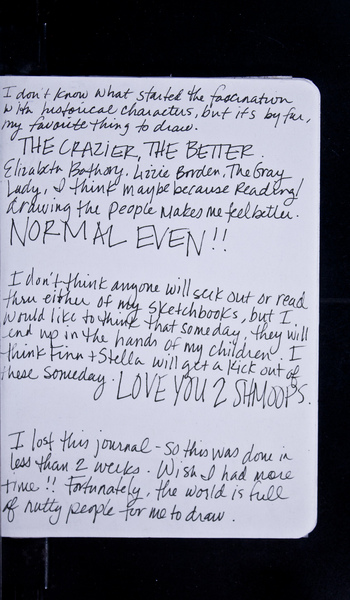 I don't know what started the fascination
with historical characters, but it's by far,
my favorite thing to draw.
THE CRAZIER, THE BETTER.
Elizabeth Bathory. Lizzie Borden, The Gray
Lady, I think maybe because Reading/
drawing the people makes me feel better.
NORMAL EVEN!!
I don't think anyone will seek out or read
thru either of my sketchbooks, but I
would like to think that someday, they will
end up in the hands of my children. I
think Finn + Stella will get a kick out of
these someday. LOVE YOU 2 SHMOOPS.
I lost this journal - so this was done in
less than 2 weeks. Wish I had more
time!! Fortunately, the world is full
of nutty people for me to draw.